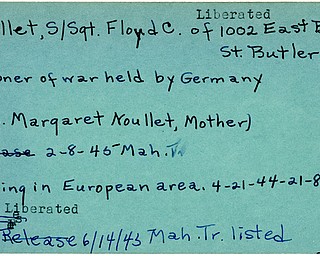 Liberated
llet, S/Sgt. Floyd C. of 1002 East B
St. Butler
oner of war held by Germany
. Margaret Noullet, Mother)
ease 2-8-45 Mah. Tr.
ing in European area. 4-21-44-21-8
Liberated
Release 6/14/45 Mah. Tr. listed